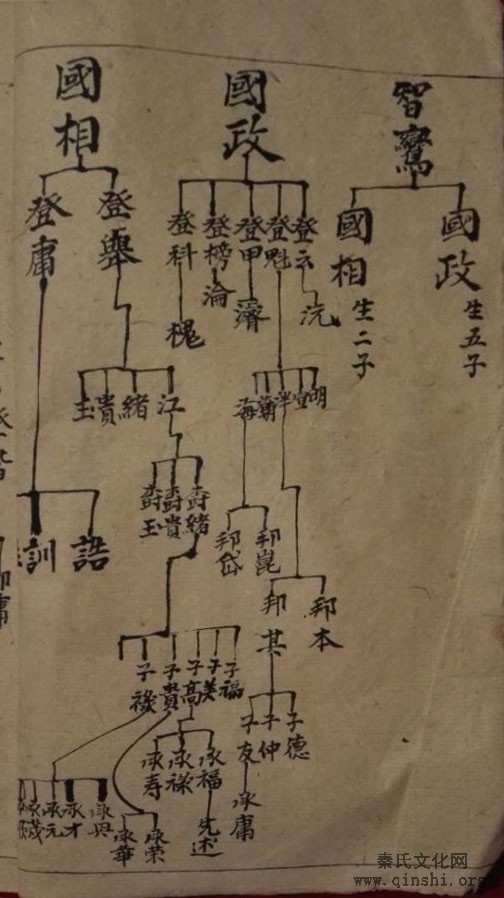 智鸞
國政 生五子
國相 生二子
國政
登云
登魁
登甲
登榜
登科
沅
濬
淪
槐
明
堂
洋
海
邦崑
邦岱
邦本
邦其
子德
子仲
子友
承庸
國相
登舉
登庸
江
緒
貴
玉
誥
訓
子福
子美
子高
子貴
子祿
承福
承祿
承寿
先述
承荣
承華
承興
承才
承元
承茂
秦氏文化网
www.qinshi.org